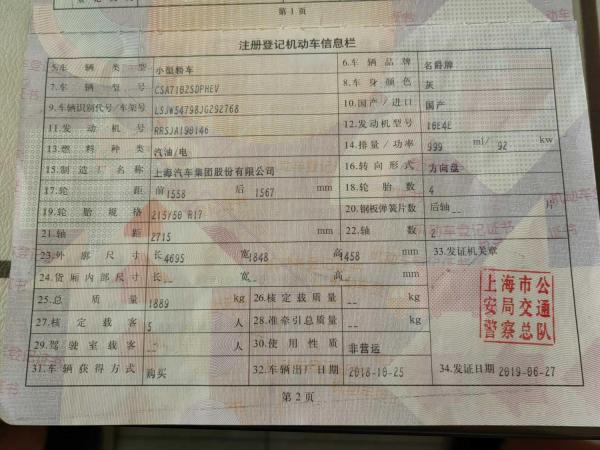 第1页
注册登记机动车信息栏
5.车辆类型 小型轿车 6.车辆品牌 名爵牌
7.车辆型号 CSA7102SDPHEV 8.车身颜色 灰
9.车辆识别代号/车架号 LSJW54798JG292768 10.国产/进口 国产
11.发动机号 RRSJA190146 12.发动机型号 10E4E
13.燃料种类 汽油/电 14.排量/功率 999 ml/ 92 kw
15.制造厂名称 上海汽车集团股份有限公司 16.转向形式 方向盘
17.轮距 前 1558 后 1567 mm 18.轮胎数 4
19.轮胎规格 215/50 R17 20.钢板弹簧片数 后轴 -- 片
21.轴距 2715 mm 22.轴数 2
23.外廓尺寸 长 4695 宽 1848 高 1458 mm 33.发证机关章
24.货厢内部尺寸 长 -- 宽 -- 高 -- mm
25.总质量 1889 kg 26.核定载质量 -- kg
27.核定载客 5 人 28.准牵引总质量 -- kg
29.驾驶室载客 -- 人 30.使用性质 非营运
31.车辆获得方式 购买 32.车辆出厂日期 2018-10-25 34.发证日期 2019-06-27
上海市公
安局交通
警察总队
第2页